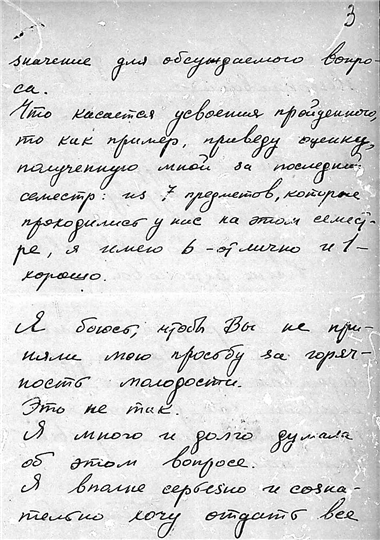 3
значение для обсуждаемого вопро-
са.
Что касается усвоения пройденного,
то как пример, приведу оценку,
полученную мной за последний
семестр: из 7 предметов, которые
проходились у нас на этом семест-
ре, я имею 6 - отлично и 1 -
хорошо.
Я боюсь, чтобы Вы не при-
няли мою просьбу за горяч-
ность молодости.
Это не так.
Я много и долго думала
об этом вопросе.
Я вполне серьезно и созна-
тельно хочу отдать все